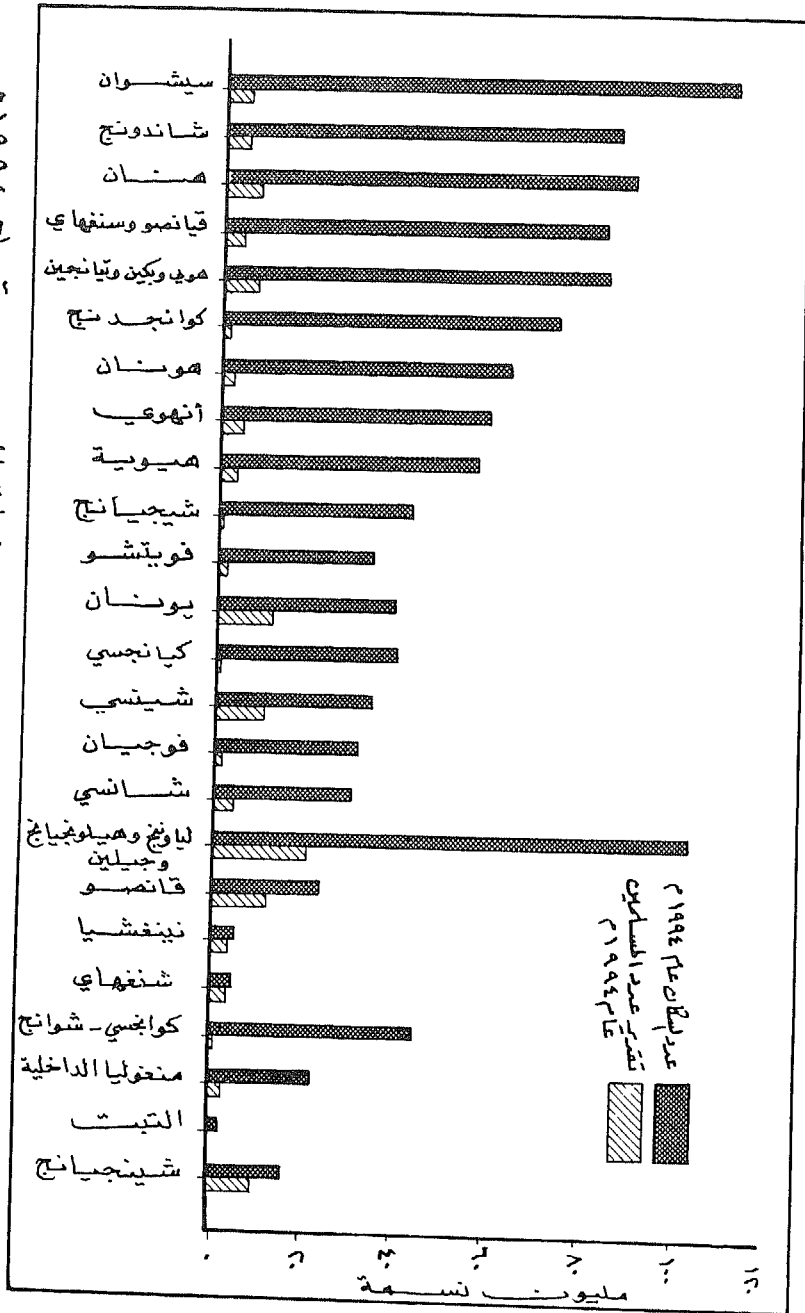 سيشوان
شاندونج
هنان
قيانصو وسنفهاي
هوبي وبكين وتيانجين
كوانجدنج
هونان
أنهوي
هيوبية
شيجيانج
فويتشو
يونان
كيانجسي
شينسي
فوجيان
شانسي
لياونينج وهيلونجيانج
وجيلين
قانصو
نينغشيا
شنغهاي
كوانجسي - شوانج
منغوليا الداخلية
التبت
شينجيانج
عدد السكان عام ١٩٩٤م
تقدير عدد المسلمين
عام ١٩٩٤م
٠
مليون نسمة